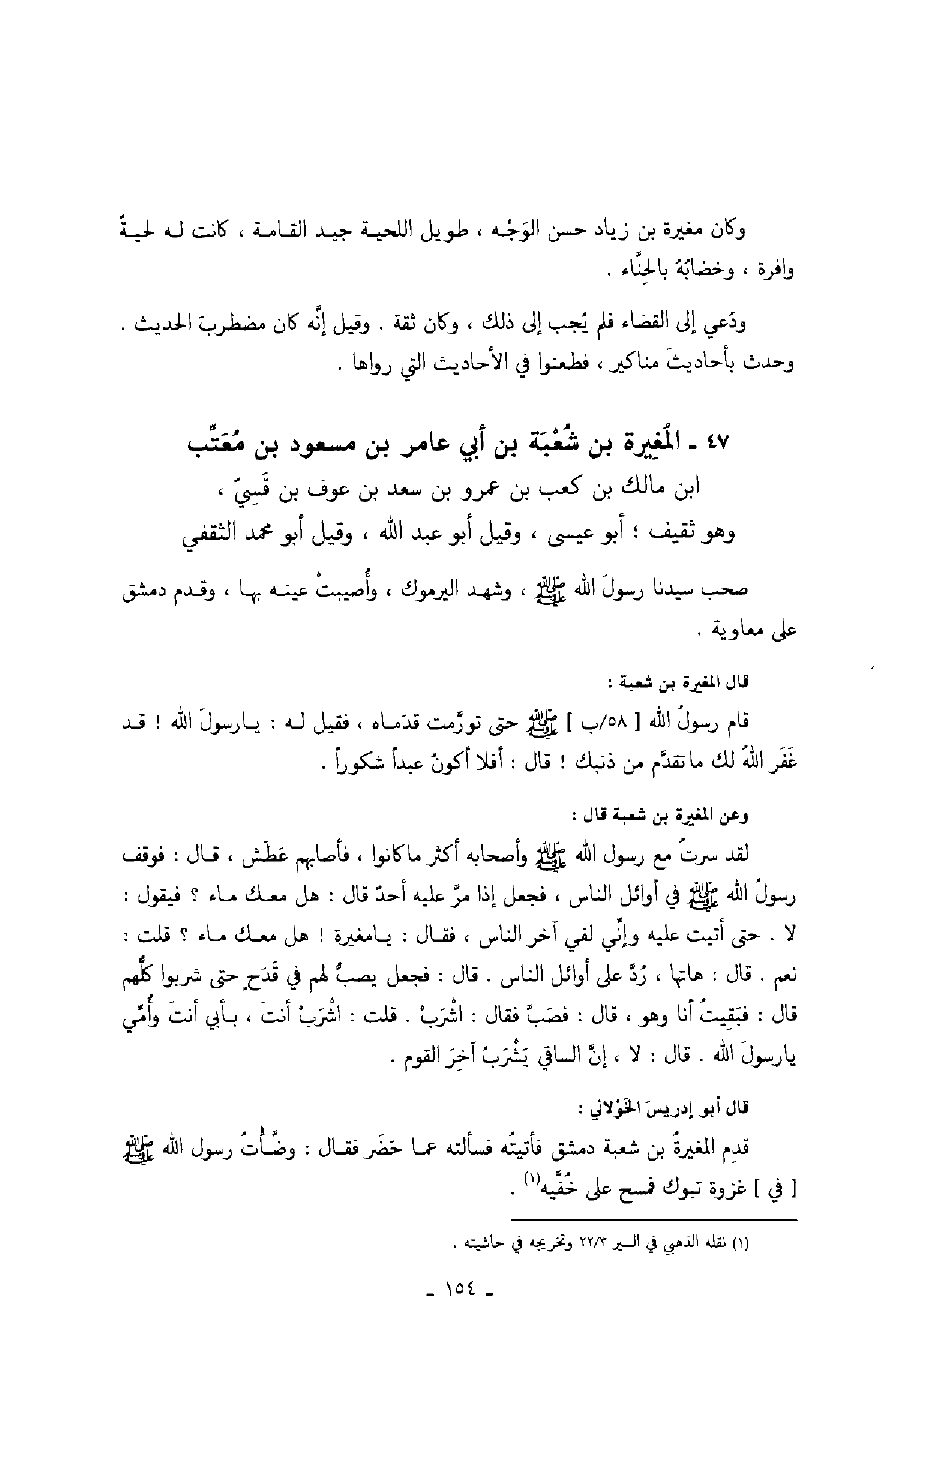 وكان مغيرة بن زياد حسن الوَجْه ، طويل اللحيـة جيـد القـامـة ، كانت لـه لحيـةٌ
وافرة ، وخضابُهُ بالحِنَّاء .
ودُعي إلى القضاء فلم يُجب إلى ذلك ، وكان ثقة . وقيل إنَّه كان مضطربَ الحديث .
وحدث بأحاديثَ مناكير ، فطعنوا في الأحاديث التي رواها .
٤٧ ـ المُغيرة بن شُعْبَة بن أبي عامر بن مسعود بن مُعَتِّب
ابن مالك بن كعب بن عمرو بن سعد بن عوف بن قَسِيّ ،
وهو ثقيف ؛ أبو عيسى ، وقيل أبو عبد الله ، وقيل أبو محمد الثقفي
صحب سيدنا رسولَ الله ﷺ ، وشهد اليرموك ، وأُصيبتْ عينـه بهـا ، وقـدم دمشق
على معاوية .
قال المغيرة بن شعبة :
قام رسولُ الله [ ٥٨/ب ] ﷺ حتى تورَّمت قدَمـاه ، فقيل لـه : يـارسولَ الله ! قـد
غَفَر اللهُ لك ماتقدَّم من ذنبك ! قال : أفلا أكونُ عبداً شكوراً .
وعن المغيرة بن شعبة قال :
لقد سرتُ مع رسول الله ﷺ وأصحابه أكثر ماكانوا ، فأصابهم عَطَش ، قـال : فوقف
رسولُ الله ﷺ في أوائل الناس ، فجعل إذا مرَّ عليه أحدٌ قال : هل معـك مـاء ؟ فيقول :
لا . حتى أتيت عليه وإنِّي لفي آخر الناس ، فقـال : يـامغيرة ! هل معـك مـاء ؟ قلت :
نعم . قال : هاتها ، رُدَّ على أوائل الناس . قال : فجعل يصبُّ لهم في قَدَحٍ حتى شربوا كلُّهم
قال : فبَقِيتُ أنا وهو ، قال : فصَبَّ فقال : اشْرَبْ . قلت : اشْرَبْ أنت ، بـأبي أنتَ وأُمِّي
يارسولَ الله . قال : لا ، إنَّ الساقي يَشْرَبُ آخِرَ القوم .
قال أبو إدريسَ الخَوْلاني :
قدِم المغيرةُ بن شعبة دمشق فأتيتُه فسألته عمـا حضَر فقـال : وضَّأتُ رسول الله ﷺ
[ في ] غزوة تبوك فمسح على خُفَّيه(١) .
(١) نقله الذهبي في السير ٢٢/٣ وتخريجه في حاشيته .
ـ ١٥٤ ـ